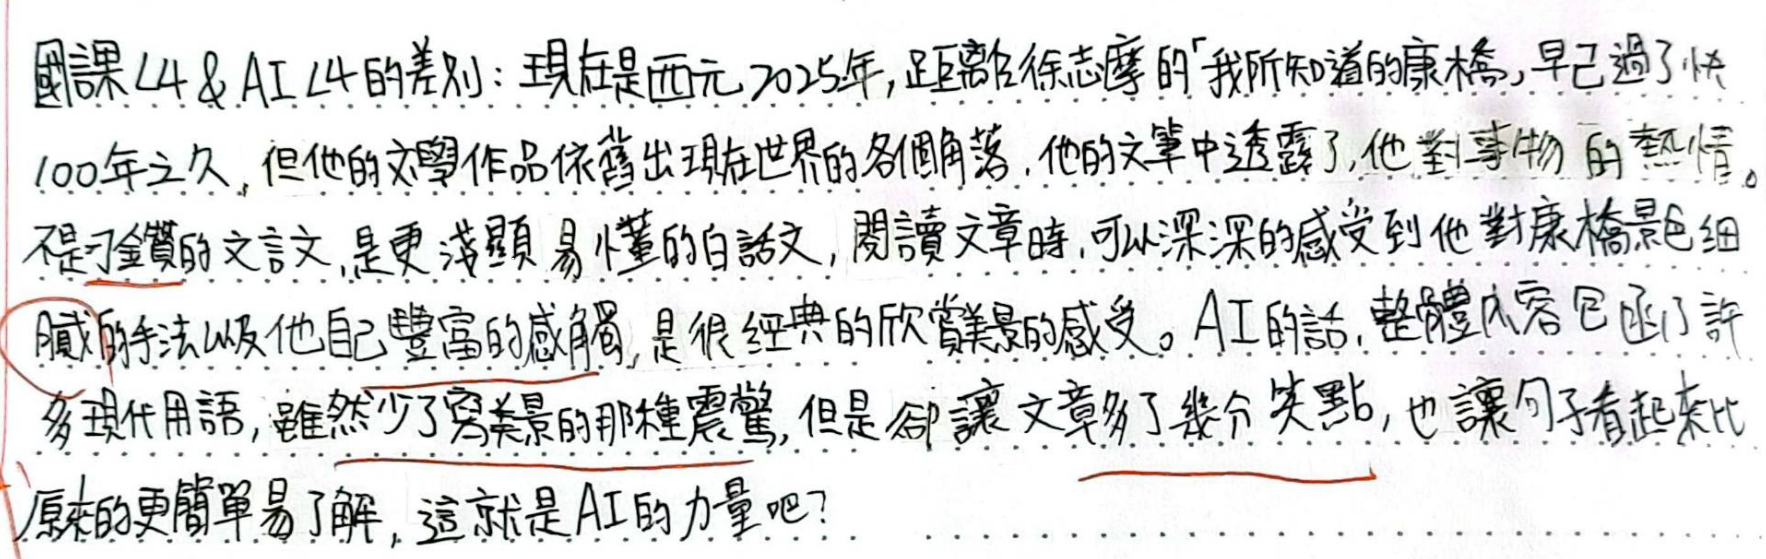 國課L4&AI L4的差別：現在是西元2025年,距離徐志摩的「我所知道的康橋」,早已過了快
100年之久,但他的文學作品依舊出現在世界的各個角落,他的文筆中透露了,他對事物的熱情。
不是刁鑽的文言文,是更淺顯易懂的白話文,閱讀文章時,可以深深的感受到他對康橋景色細
膩的手法以及他自己豐富的感觸,是很經典的欣賞美景的感受。AI的話,整體內容包函了許
多現代用語,雖然少了寫美景的那種震驚,但是卻讓文章多了幾分笑點,也讓句子看起來比
原來的更簡單易了解,這就是AI的力量吧?